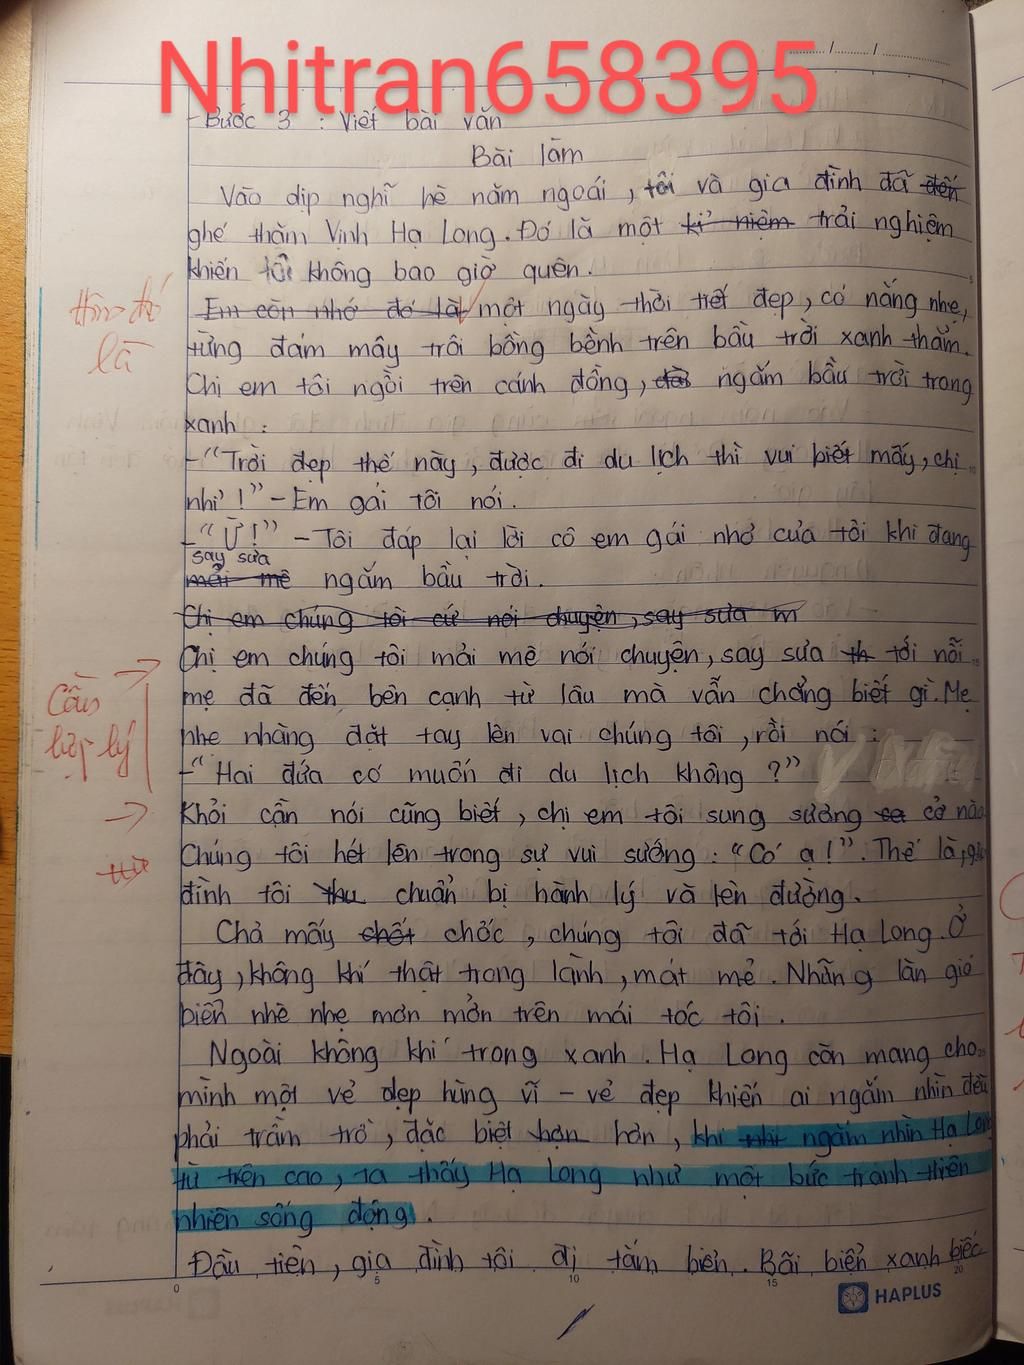 Nhitran658395
- Bước 3 : Viết bài văn
Bài làm
Vào dịp nghỉ hè năm ngoái, tôi và gia đình đã đến
ghé thăm Vịnh Hạ Long. Đó là một kỉ niệm trải nghiệm
khiến tôi không bao giờ quên.
Em còn nhớ đó là một ngày thời tiết đẹp, có nắng nhẹ,
Hôm đó
là
từng đám mây trôi bồng bềnh trên bầu trời xanh thẳm.
Chị em tôi ngồi trên cánh đồng, ngắm bầu trời trong
xanh :
- "Trời đẹp thế này, được đi du lịch thì vui biết mấy, chị
nhỉ !" - Em gái tôi nói.
- "Ừ !" - Tôi đáp lại lời cô em gái nhỏ của tôi khi đang
say sưa
mải mê ngắm bầu trời.
Chị em chúng tôi cứ nói chuyện, say sưa m
Chị em chúng tôi mải mê nói chuyện, say sưa th tới nỗi
mẹ đã đến bên cạnh từ lâu mà vẫn chẳng biết gì. Mẹ
Cần
hợp lý
nhẹ nhàng đặt tay lên vai chúng tôi, rồi nói :
- "Hai đứa có muốn đi du lịch không ?"
Khỏi cần nói cũng biết, chị em tôi sung sướng cỡ nào.
Chúng tôi hét lên trong sự vui sướng : "Có ạ !". Thế là,
đình tôi thu chuẩn bị hành lý và lên đường.
Chả mấy chốt chốc, chúng tôi đã tới Hạ Long. Ở
đây, không khí thật trong lành, mát mẻ. Những làn gió
biển nhè nhẹ mơn mởn trên mái tóc tôi.
Ngoài không khí trong xanh. Hạ Long còn mang cho
mình một vẻ đẹp hùng vĩ - vẻ đẹp khiến ai ngắm nhìn đều
phải trầm trồ, đặc biệt hơn hơn, khi nhì ngắm nhìn Hạ Long
từ trên cao, ta thấy Hạ Long như một bức tranh thiên
nhiên sống động.
Đầu tiên, gia đình tôi đi tắm biển. Bãi biển xanh biếc
0 5 10 15 20
HAPLUS